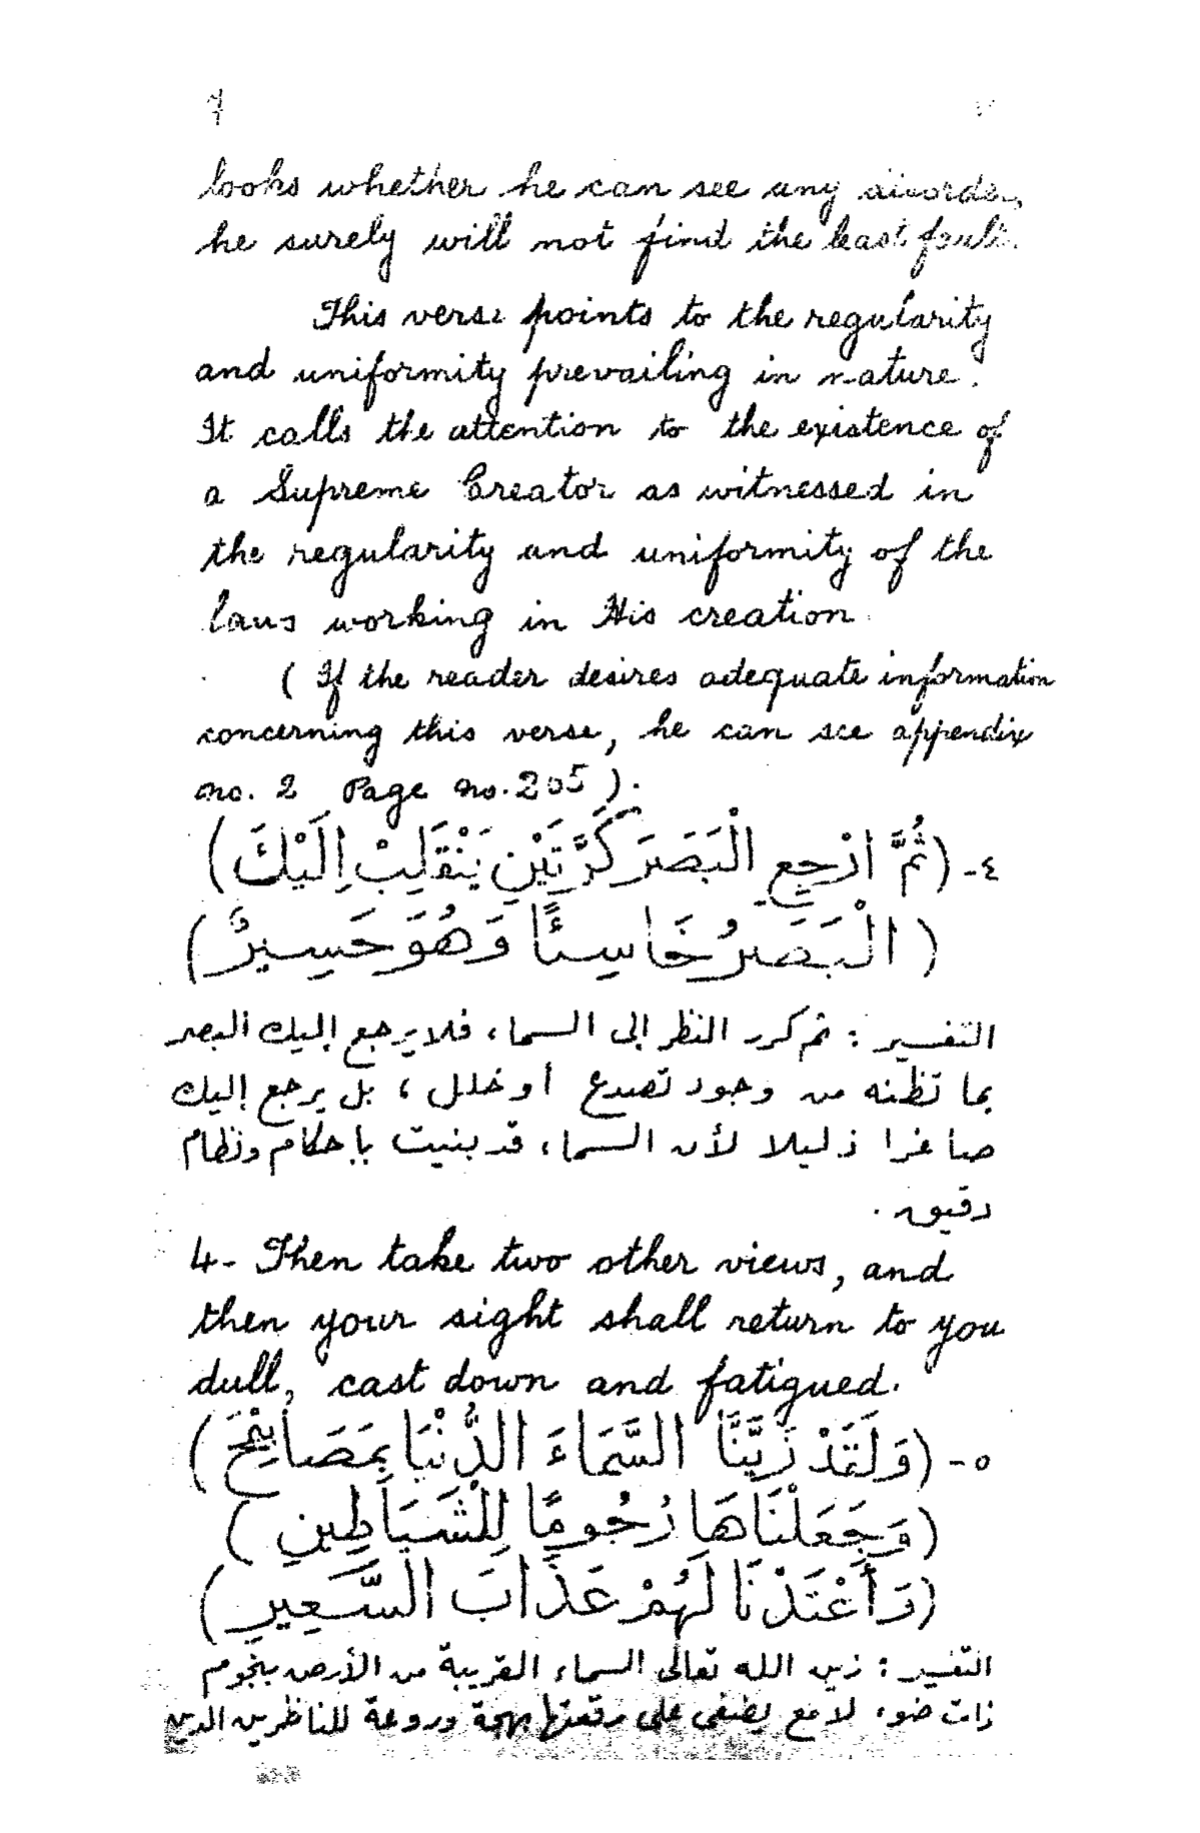 looks whether he can see any disorder,
he surely will not find the least fault.
This verse points to the regularity
and uniformity prevailing in nature.
It calls the attention to the existence of
a Supreme Creator as witnessed in
the regularity and uniformity of the
laws working in His creation.
( If the reader desires adequate information
concerning this verse, he can see appendix
no. 2 Page no. 205 ).
٤- (ثُمَّ ارْجِعِ الْبَصَرَ كَرَّتَيْنِ يَنْقَلِبْ اِلَيْكَ)
(الْبَصَرُ خَاسِئًا وَهُوَ حَسِيرٌ)
التفسير : ثم كرر النظر إلى السماء، فلا يرجع إليك البصر
بما تظنه من وجود تصدع أو خلل ، بل يرجع إليك
صاغرا ذليلا لأن السماء، قد بنيت بإحكام ونظام
دقيق .
4- Then take two other views, and
then your sight shall return to you
dull, cast down and fatigued.
٥- (وَلَقَدْ زَيَّنَّا السَّمَاءَ الدُّنْيَا بِمَصَابِيْحَ)
(وَجَعَلْنَاهَا رُجُومًا لِلْشَيَاطِينِ )
(وَأَعْتَدْنَا لَهُمْ عَذَابَ السَّعِيرِ)
التفسير : زين الله تعالى السماء القريبة من الأرض بنجوم
ذات ضوء لامع يضفى على رقعتها بهجة وروعة للناظرين الذين